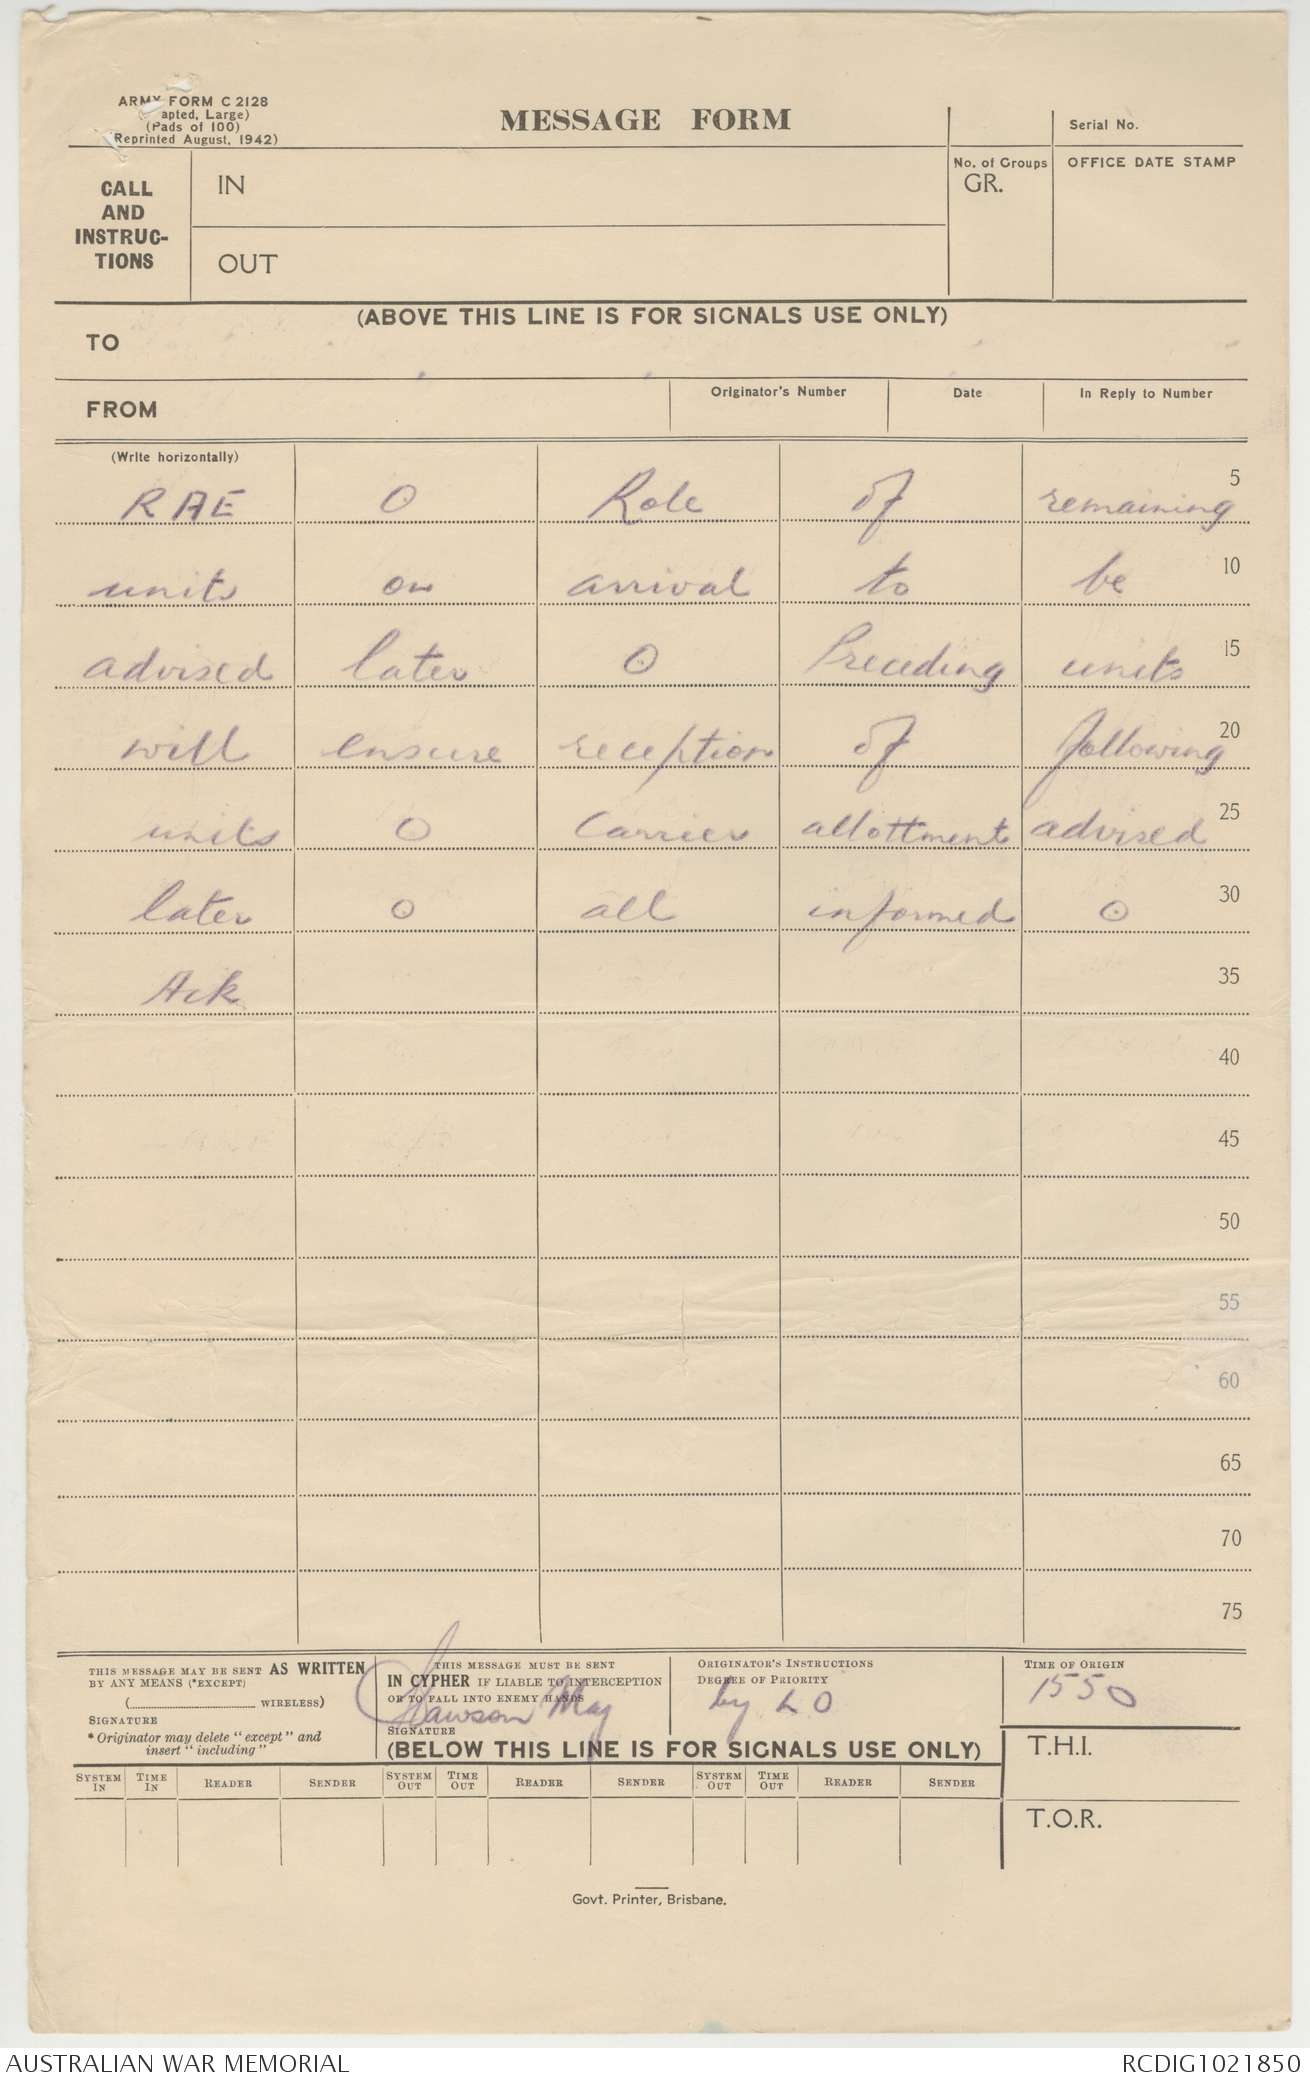 ARMY FORM C 2128
apted, Large)
(Pads of 100)
Reprinted August, 1942)
MESSAGE FORM
Serial No.
CALL
AND
INSTRUC-
TIONS
IN
OUT
No. of Groups
GR.
OFFICE DATE STAMP
(ABOVE THIS LINE IS FOR SIGNALS USE ONLY)
TO
FROM
Originator's Number
Date
In Reply to Number
(Write horizontally)
RAE O Role of remaining 5
units on arrival to be 10
advised later O Preceding units 15
will ensure reception of following 20
units O Carrier allottment advised 25
later O all informed O 30
Ack 35
40
45
50
55
60
65
70
75
THIS MESSAGE MAY BE SENT AS WRITTEN
BY ANY MEANS (*EXCEPT)
( WIRELESS)
SIGNATURE
* Originator may delete "except" and
insert "including"
THIS MESSAGE MUST BE SENT
IN CYPHER IF LIABLE TO INTERCEPTION
OR TO FALL INTO ENEMY HANDS
Lawson Maj
SIGNATURE
ORIGINATOR'S INSTRUCTIONS
DEGREE OF PRIORITY
by LO
TIME OF ORIGIN
1550
(BELOW THIS LINE IS FOR SIGNALS USE ONLY)
T.H.I.
SYSTEM IN TIME IN READER SENDER SYSTEM OUT TIME OUT READER SENDER SYSTEM OUT TIME OUT READER SENDER
T.O.R.
Govt. Printer, Brisbane.
AUSTRALIAN WAR MEMORIAL
RCDIG1021850